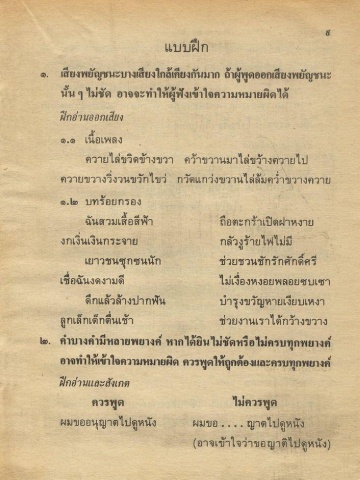 ๕
แบบฝึก
๑. เสียงพยัญชนะบางเสียงใกล้เคียงกันมาก ถ้าผู้พูดออกเสียงพยัญชนะ
นั้น ๆ ไม่ชัด อาจจะทำให้ผู้ฟังเข้าใจความหมายผิดได้
ฝึกอ่านออกเสียง
๑.๑ เนื้อเพลง
ควายไล่ขวิดข้างขวา คว้าขวานมาไล่ขว้างควายไป
ควายขวางวิ่งวนขวักไขว่ กวัดแกว่งขวานไล่ล้มคว่ำขวางควาย
๑.๒ บทร้อยกรอง
ฉันสวมเสื้อสีฟ้า ถือตะกร้าเปิดฝาหงาย
งกเงิ่นเงินกระจาย กลัวงูร้ายไฟไม่มี
เยาวชนซุกซนนัก ช่วยชวนชักรักศักดิ์ศรี
เชื่อฉันงดงามดี ไม่เงื่องหงอยพลอยซบเซา
ดึกแล้วล้างปากฟัน บำรุงขวัญหายเงียบเหงา
ลูกเล็กเด็กตื่นเช้า ช่วยงานเราได้กว้างขวาง
๒. คำบางคำมีหลายพยางค์ หากได้ยินไม่ชัดหรือไม่ครบทุกพยางค์
อาจทำให้เข้าใจความหมายผิด ควรพูดให้ถูกต้องและครบทุกพยางค์
ฝึกอ่านและสังเกต
ควรพูด ไม่ควรพูด
ผมขออนุญาตไปดูหนัง ผมขอ....ญาตไปดูหนัง
(อาจเข้าใจว่าขอญาติไปดูหนัง)